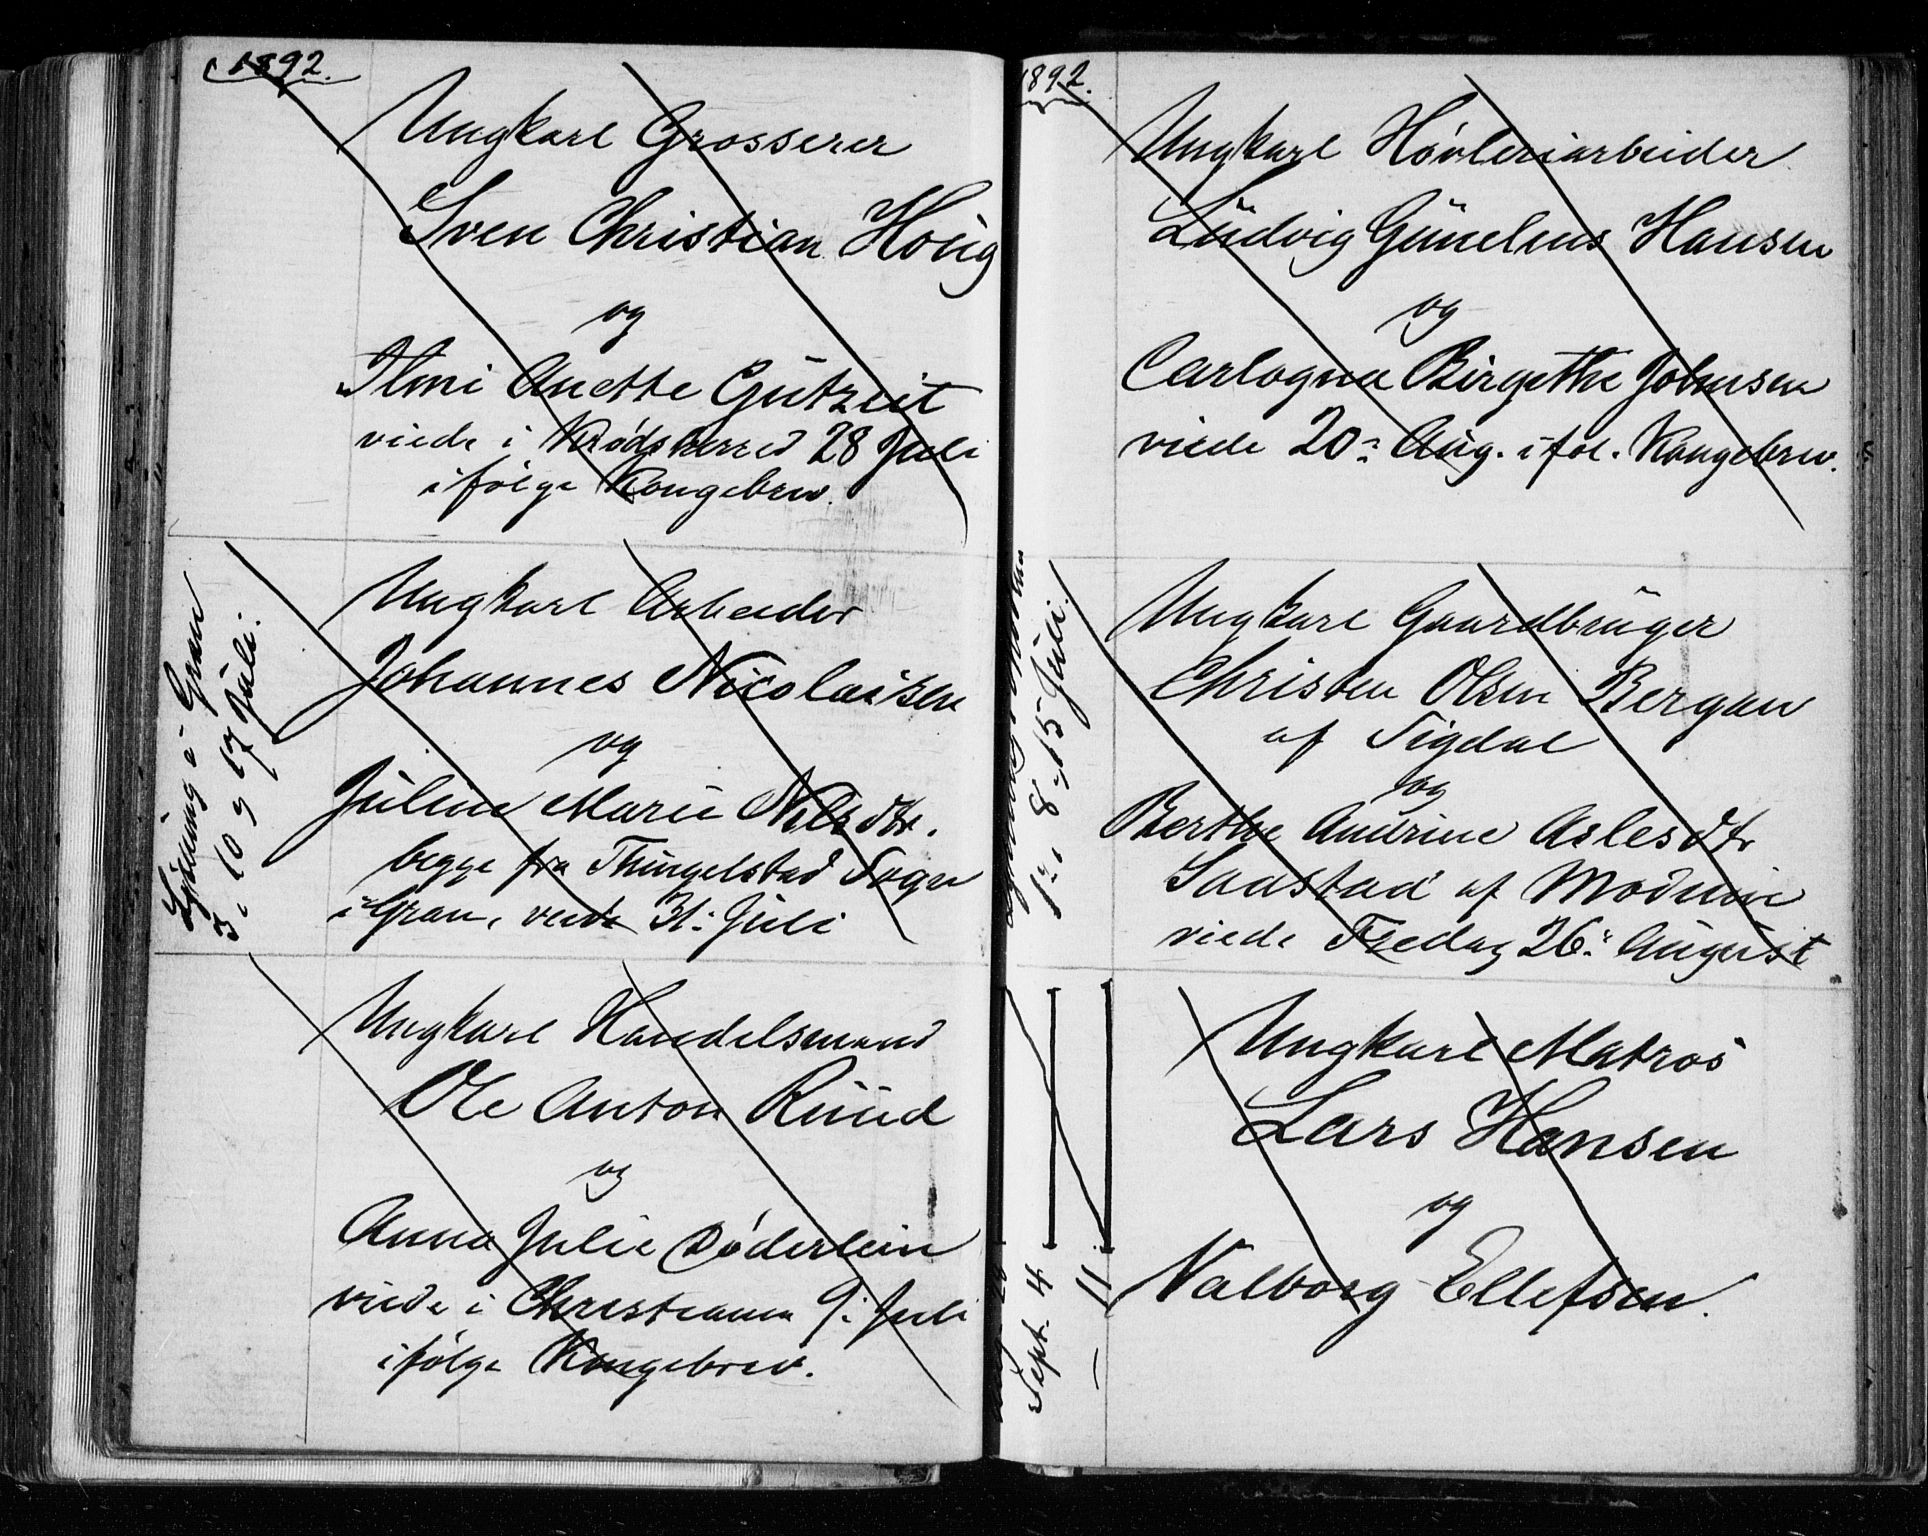 1892.
Ungkarl Grosserer
Sven Christian Houg
og
Ilmi Anette Gutzeit
viede i Krødsherred 28 Juli
ifølge Kongebrev.
Lysning i Gran
3, 10 g 17 Juli.
Ungkarl Arbeider
Johannes Nicolaisen
og
Juline Marie Nilsdtr.
begge fra Thingelstad Sogn
i Gran, viede 31: Juli
Ungkarl Handelsmand
Ole Anton Ruud
og
Anna Julie Døderlein
viede i Christiania 9: Juli
ifølge Kongebrev.
1892.
Ungkarl Høvleriarbeider
Ludvig Hansen
og
Carlogna Birgethe Johnsen
viede 20: Aug. iføl. Kongebrev.
1, 8, 15 Juli.
Ungkarl Gaardbruger
Christen Olsen Bergan
af Sigdal
og
Berthe Andrine Aslesdtr
Saastad af Modum
viede Fredag 26: August
Sept. 4
— 11
Ungkarl Matros
Lars Hansen
og
Valborg Ellefsen.